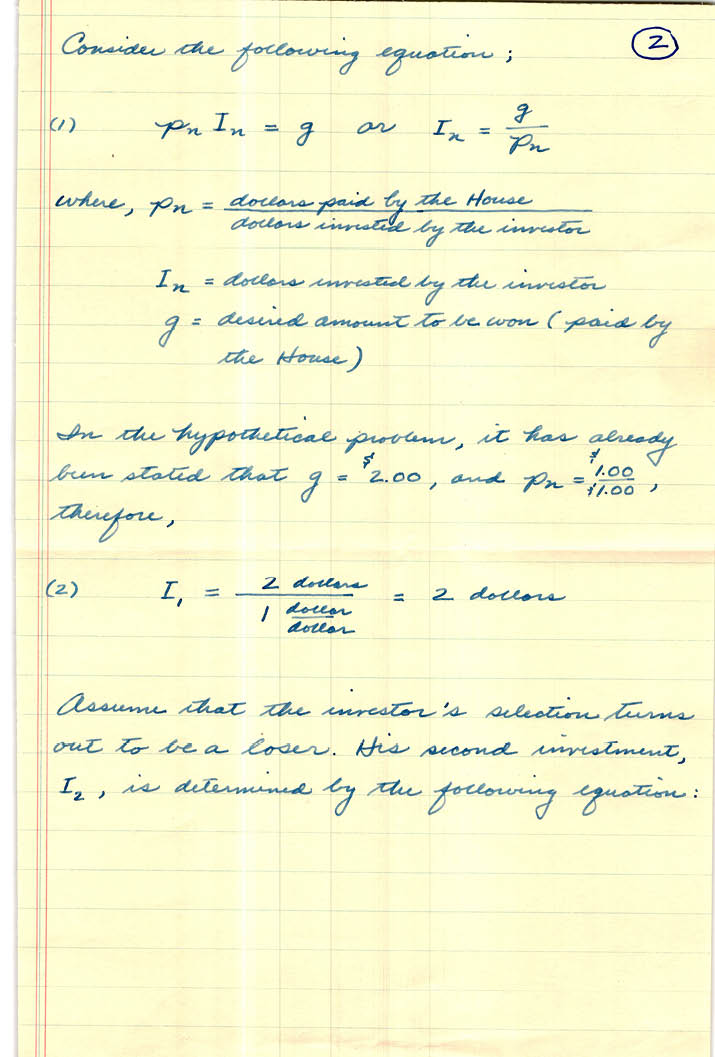 Consider the following equation; 2
(1) pn In = g or In = g/pn
where, pn = dollars paid by the House
dollars invested by the investor
In = dollars invested by the investor
g = desired amount to be won (paid by
the House)
In the hypothetical problem, it has already
been stated that g = $2.00, and pn = $1.00/$1.00,
therefore,
(2) I1 = 2 dollars / 1 dollar/dollar = 2 dollars
Assume that the investor's selection turns
out to be a loser. His second investment,
I2, is determined by the following equation: